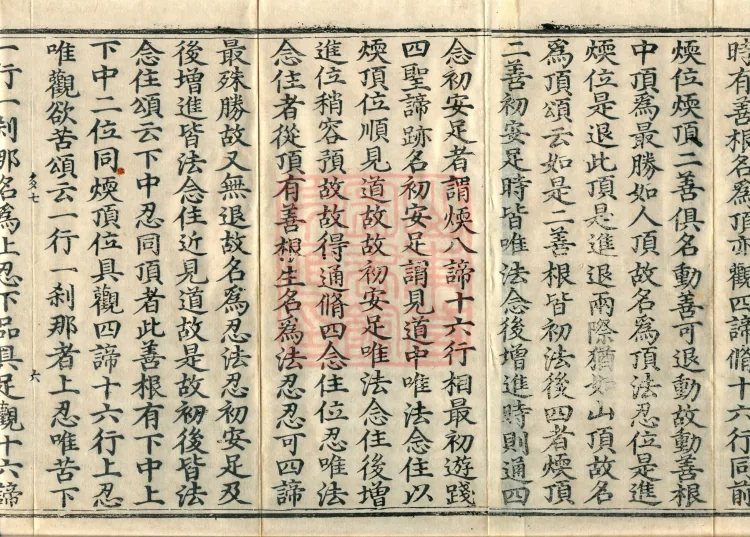 時有善根名為頂亦觀四諦脩十六行同前
煗位煗頂二善俱名動善可退動故動善根
中頂為最勝如人頂故名為頂法忍位是進
煗位是退此頂是進退兩際猶如山頂故名
為頂頌云如是二善根皆初法後四者煗頂
二善初安足時皆唯法念後增進時則通四
念初安足者謂煗八諦十六行相最初遊踐
四聖諦跡名初安足謂見道中唯法念住以
煗頂位順見道故故初安足唯法念住後增
進位稍容預故故得通脩四念住位忍唯法
念住者從頂有善根生名為法忍忍可四諦
最殊勝故又無退故名為忍法忍初安足及
後增進皆法念住近見道故是故初後皆法
念住頌云下中忍同頂者此善根有下中上
下中二位同煗頂位具觀四諦十六行上忍
唯觀欲苦頌云一行一剎那者上忍唯苦下
六
一行一剎那名為上忍下品具足觀十六諦